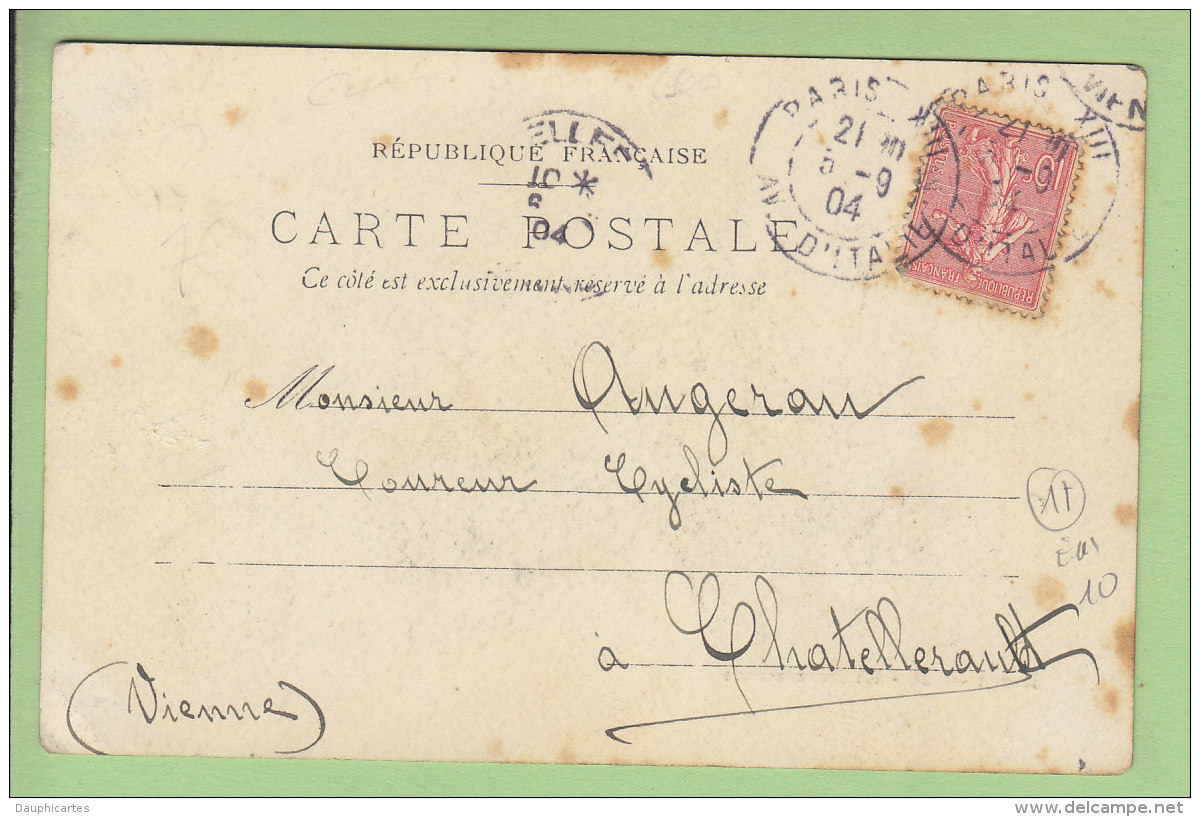 RÉPUBLIQUE FRANÇAISE
CARTE POSTALE
Ce côté est exclusivement réservé à l'adresse
PARIS XIII
21
5 - 9
04
AV. D'ITALIE
PARIS XIII
21
- 9
D'ITAL
VIEN
ELLER
10 *
6
04
10
POSTES
RÉPUBLIQUE FRANÇAISE
Monsieur Angerau
Coureur Cycliste
à Chatellerault
(Vienne)
11
10
Dauphicartes